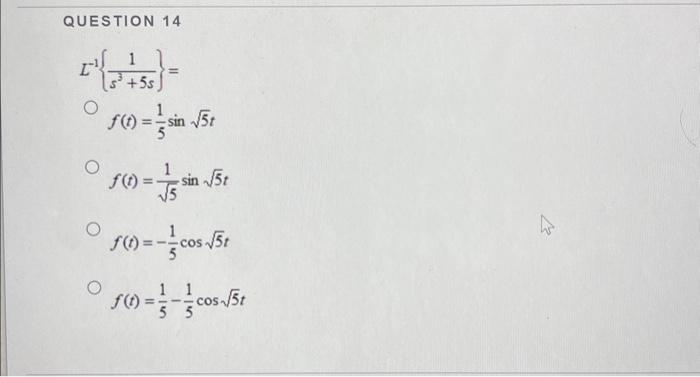 QUESTION 14
L⁻¹{1/(s³+5s)}=
f(t) = 1/5 sin √5t
f(t) = 1/√5 sin √5t
f(t) = -1/5 cos √5t
f(t) = 1/5 - 1/5 cos √5t